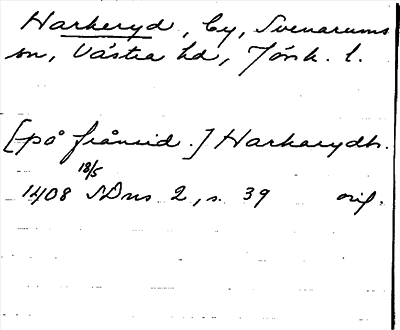 Harkeryd, by, Svenarums
sn, Västra hd, Jönk. l.
[på frånsid.] Harkarydh.
18/5
1408 SDns 2, s. 39 orig.